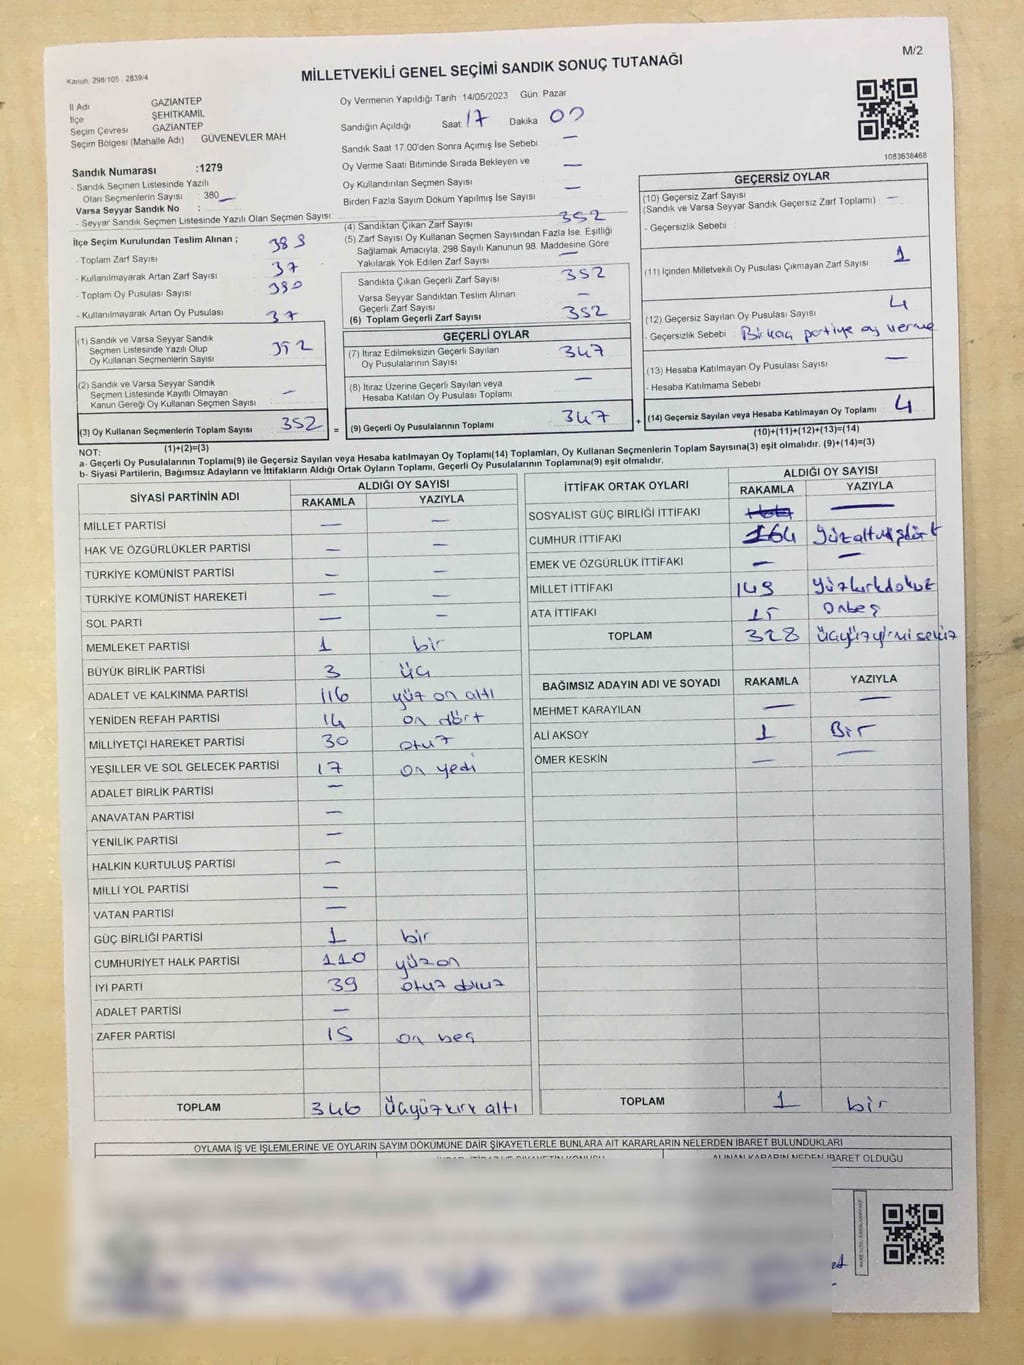 M/2
Kanun, 298/105 , 2839/4
MİLLETVEKİLİ GENEL SEÇİMİ SANDIK SONUÇ TUTANAĞI
İl Adı GAZİANTEP
İlçe ŞEHİTKAMİL
Seçim Çevresi GAZİANTEP
Seçim Bölgesi (Mahalle Adı) GÜVENEVLER MAH.
Sandık Numarası :1279
- Sandık Seçmen Listesinde Yazılı
Olan Seçmenlerin Sayısı : 380
Varsa Seyyar Sandık No :
- Seyyar Sandık Seçmen Listesinde Yazılı Olan Seçmen Sayısı
Oy Vermenin Yapıldığı Tarih 14/05/2023 Gün: Pazar
Sandığın Açıldığı Saat 17 Dakika 00
Sandık Saat 17:00'den Sonra Açımış İse Sebebi —
Oy Verme Saati Bitiminde Sırada Bekleyen ve —
Oy Kullandırılan Seçmen Sayısı
Birden Fazla Sayım Döküm Yapılmış İse Sayısı —
1083638468
İlçe Seçim Kurulundan Teslim Alınan ;
- Toplam Zarf Sayısı 383
- Kullanılmayarak Artan Zarf Sayısı 37
- Toplam Oy Pusulası Sayısı 380
- Kullanılmayarak Artan Oy Pusulası 37
(1) Sandık ve Varsa Seyyar Sandık
Seçmen Listesinde Yazılı Olup
Oy Kullanan Seçmenlerin Sayısı 352
(2) Sandık ve Varsa Seyyar Sandık
Seçmen Listesinde Kayıtlı Olmayan
Kanun Gereği Oy Kullanan Seçmen Sayısı —
(3) Oy Kullanan Seçmenlerin Toplam Sayısı 352 =
(1)+(2)=(3)
(4) Sandıktan Çıkan Zarf Sayısı 352
(5) Zarf Sayısı Oy Kullanan Seçmen Sayısından Fazla İse, Eşitliği
Sağlamak Amacıyla, 298 Sayılı Kanunun 98. Maddesine Göre
Yakılarak Yok Edilen Zarf Sayısı —
Sandıkta Çıkan Geçerli Zarf Sayısı 352
Varsa Seyyar Sandıktan Teslim Alınan
Geçerli Zarf Sayısı —
(6) Toplam Geçerli Zarf Sayısı 352
GEÇERLİ OYLAR
(7) İtiraz Edilmeksizin Geçerli Sayılan
Oy Pusulalarının Sayısı 347
(8) İtiraz Üzerine Geçerli Sayılan veya
Hesaba Katılan Oy Pusulası Toplamı —
(9) Geçerli Oy Pusulalarının Toplamı 347 +
GEÇERSİZ OYLAR
(10) Geçersiz Zarf Sayısı
(Sandık ve Varsa Seyyar Sandık Geçersiz Zarf Toplamı) —
- Geçersizlik Sebebi
(11) İçinden Milletvekili Oy Pusulası Çıkmayan Zarf Sayısı 1
(12) Geçersiz Sayılan Oy Pusulası Sayısı 4
- Geçersizlik Sebebi Birkaç partiye oy verme
(13) Hesaba Katılmayan Oy Pusulası Sayısı —
- Hesaba Katılmama Sebebi
(14) Geçersiz Sayılan veya Hesaba Katılmayan Oy Toplamı 4
(10)+(11)+(12)+(13)=(14)
NOT:
a- Geçerli Oy Pusulalarının Toplamı(9) ile Geçersiz Sayılan veya Hesaba katılmayan Oy Toplamı(14) Toplamları, Oy Kullanan Seçmenlerin Toplam Sayısına(3) eşit olmalıdır. (9)+(14)=(3)
b- Siyasi Partilerin, Bağımsız Adayların ve İttifakların Aldığı Ortak Oyların Toplamı, Geçerli Oy Pusulalarının Toplamına(9) eşit olmalıdır.
SİYASİ PARTİNİN ADI ALDIĞI OY SAYISI
RAKAMLA YAZIYLA
MİLLET PARTİSİ — —
HAK VE ÖZGÜRLÜKLER PARTİSİ — —
TÜRKİYE KOMÜNİST PARTİSİ — —
TÜRKİYE KOMÜNİST HAREKETİ — —
SOL PARTİ — —
MEMLEKET PARTİSİ 1 bir
BÜYÜK BİRLİK PARTİSİ 3 üç
ADALET VE KALKINMA PARTİSİ 116 yüz on altı
YENİDEN REFAH PARTİSİ 14 on dört
MİLLİYETÇİ HAREKET PARTİSİ 30 otuz
YEŞİLLER VE SOL GELECEK PARTİSİ 17 on yedi
ADALET BİRLİK PARTİSİ —
ANAVATAN PARTİSİ —
YENİLİK PARTİSİ —
HALKIN KURTULUŞ PARTİSİ —
MİLLİ YOL PARTİSİ —
VATAN PARTİSİ —
GÜÇ BİRLİĞİ PARTİSİ 1 bir
CUMHURİYET HALK PARTİSİ 110 yüzon
İYİ PARTİ 39 otuz dokuz
ADALET PARTİSİ —
ZAFER PARTİSİ 15 on beş
TOPLAM 346 üçyüz kırk altı
İTTİFAK ORTAK OYLARI ALDIĞI OY SAYISI
RAKAMLA YAZIYLA
SOSYALİST GÜÇ BİRLİĞİ İTTİFAKI —
CUMHUR İTTİFAKI 164 yüzaltmışdört
EMEK VE ÖZGÜRLÜK İTTİFAKI — —
MİLLET İTTİFAKI 149 yüzkırkdokuz
ATA İTTİFAKI 15 onbeş
TOPLAM 328 üçyüzyirmisekiz
BAĞIMSIZ ADAYIN ADI VE SOYADI RAKAMLA YAZIYLA
MEHMET KARAYILAN — —
ALİ AKSOY 1 Bir
ÖMER KESKİN — —
TOPLAM 1 bir
OYLAMA İŞ VE İŞLEMLERİNE VE OYLARIN SAYIM DÖKÜMÜNE DAİR ŞİKAYETLERLE BUNLARA AİT KARARLARIN NELERDEN İBARET BULUNDUKLARI
ALINAN KARARIN NEDEN İBARET OLDUĞU